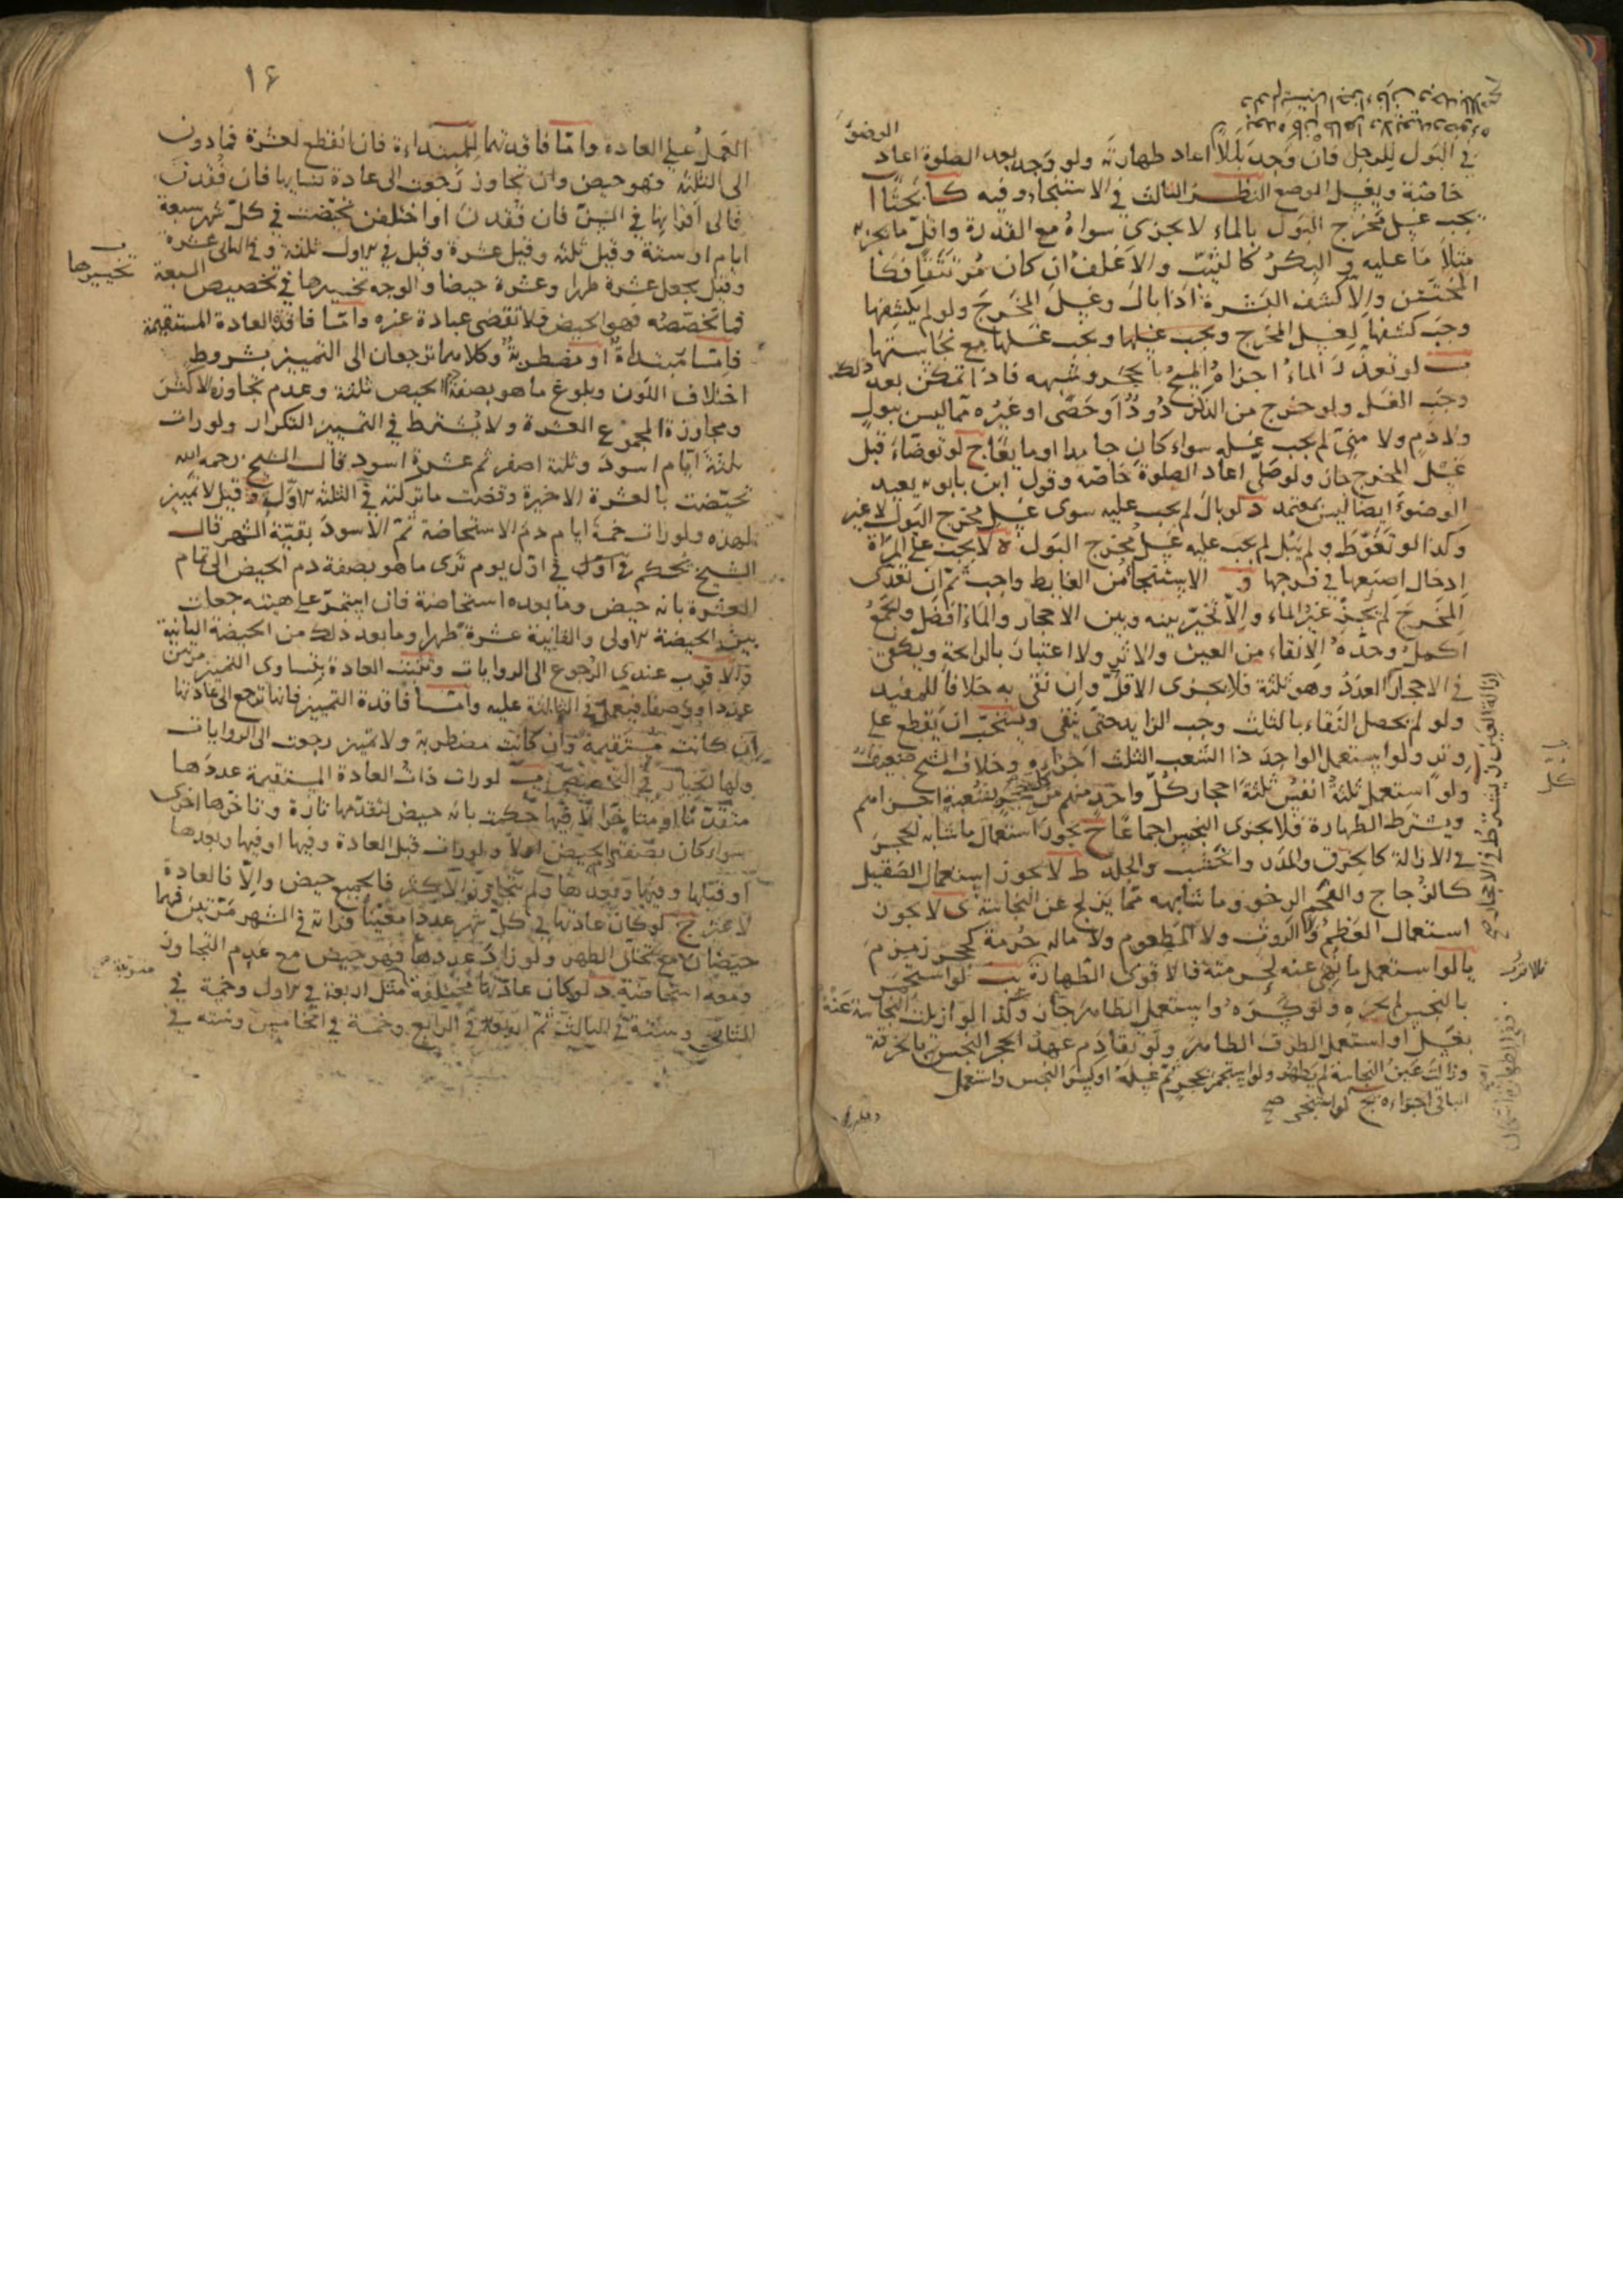 في البول للرجل فان وجد بللا اعاد طهارته ولو وجده بعد الصلوة اعاد الوضوء
خاصة ويغسل الموضع النظر الثالث في الاستنجاء وفيه كا بحثا ا
يجب غسل مخرج البول بالماء لا يجزى سواه مع القدرة واقل ما يجزى
مثلا ما عليه و البكر كالثيب والاغلف ان كان مرتتقا فكا
المختتن والا كشف البشرة اذا بال وغسل المخرج ولو لم يكشفها
وجب كشفها لغسل المخرج ويجب غسلها ويجب غسلها مع نجاستها
ب لو تعذر الماء اجزاه المسح بالحجر وشبهه فاذا تمكن بعد ذلك
وجب الغسل ولو خرج من الذكر دود او حصى او غيره مما ليس ببول
ولا دم ولا منى لم يجب غسله سواء كان جامدا او مايعا ج لو توضاء قبل
غسل المخرج جاز ولو صلى اعاد الصلوة خاصة وقول ابن بابويه يعيد
الوضوء ايضا ليس بمعتمد د لو بال لم يجب عليه سوى غسل مخرج البول لا غير
وكذا لو تغوط ولم يبل لم يجب عليه غسل مخرج البول ه لا يجب على المراة
ادخال اصبعها في فرجها و الاستنجاء من الغايط واجب ثم ان تعدى
المخرج لم يجز غير الماء والا تخير بينه وبين الاحجار والماء افضل والجمع
اكمل وحده الانقاء من العين والاثر ولا اعتبار بالرايحة ويكفى
في الاحجار العدد وهو ثلثة فلا يجزى الاقل وان نقى به خلافا للمفيد
ولو لم يحصل النقاء بالثلث وجب الزايد حتى ينقى ويستحب ان يقطع على
وتر ولو استعمل الواحد ذا الشعب الثلث اجزاه وخلاف الشيخ ضعيف
ولو استعمل ثلثة انفس ثلثة احجار كل واحد منهم من كل حجر بشعبة اجزاهم
ويشترط الطهارة فلا يجزى النجس اجماعا ح يجوز استعمال ما شابه الحجر
في الازالة كالخرق والمدر والخشب والجلد ط لا يجوز استعمال الصقيل
كالزجاج والفحم الرخو وما شابهه مما يزلج عن النجاسة ى لا يجوز
استعمال العظم والروث ولا المطعوم ولا ماله حرمة كحجر زمزم
يا لو استعمل ما نهى عنه لحرمته فالاقوى الطهارة يب لو استجمر
بالنجس لم يجزه ولو كسره واستعمل الطاهر جاز وكذا لو ازيلت النجاسة عنه
بغسل او استعمل الطرف الطاهر ولو تقادم عهد الحجر النجس بالخرقة
وزالت عين النجاسة لم يطهر ولو استجمر بحجر ثم غسله او كسر النجس واستعمل
الباقى اجزاه يج لو استنجى صح
١٤
العمل على العادة واما فاقدتهما للمبتداءة فان انقطع لعشرة فما دون
الى الثلثة فهو حيض وان تجاوز رجعت الى عادة نسايها فان فقدن
فالى اقرانها في السن فان فقدن او اختلفن تحيضت في كل شهر سبعة
ايام او ستة وقيل ثلثة وقيل عشرة وقيل في الاول ثلثة وفي الثانى عشرة
وقيل يجعل عشرة طهرا وعشرة حيضا والوجه تخييرها في تخصيص السبعة
تخييرها
فما تخصصه فهو الحيض فلا تقضى عبادة غيره واما فاقدة العادة المستقيمة
فاما مبتداة او مضطربة وكلاهما ترجعان الى التمييز بشروط
اختلاف اللون وبلوغ ما هو بصفة الحيض ثلثة وعدم تجاوزه الاكثر
ومجاوزة المجموع العشرة ولا يشترط في التمييز التكرار ولو رات
ثلثة ايام اسود وثلثة اصفر ثم عشرة اسود قال الشيخ رحمه الله
تحيضت بالعشرة الاخيرة وقضت ما تركته في الثلثة الاول وقيل لا تمييز
لهذه ولو رات خمسة ايام دم الاستحاضة ثم الاسود بقية الشهر قال
الشيخ تحكم في اول في اول يوم ترى ما هو بصفة دم الحيض الى تمام
العشرة بانه حيض وما بعده استحاضة فان استمر على هيئته جعلت
بين الحيضة الاولى والثانية عشرة طهرا وما بعد ذلك من الحيضة الثانية
والاقرب عندي الرجوع الى الروايات وتثبت العادة بتساوى التمييز مرتين
عددا ووصفا فيعمل في الثالثة عليه واما فاقدة التمييز فانها ترجع الى عادتها
ان كانت مستقيمة وان كانت مضطربة ولا تميز رجعت الى الروايات
ولها الخيار في التخصيص ب لو رات ذات العادة المستقيمة عددها
متقدما او متاخرا لا فيها حكمت بانه حيض لتقدمها تارة وتاخرها اخرى
سواء كان بصفة الحيض او لا ولو رات قبل العادة وفيها او فيها وبعدها
او قبلها وفيها وبعدها ولم يتجاوز الاكثر فالجميع حيض والا فالعادة
لا غير ج لو كان عادتها في كل شهر عددا معينا فراته في الشهر مرتين فهما
حيضان مع تخلل الطهر ولو زاد عددها فهو حيض مع عدم التجاوز
ومعه استحاضة د لو كان عادتها مختلفة مثل اربعة في الاول وخمسة في
الثانى وستة في الثالث ثم اربعة في الرابع وخمسة في الخامس وستة في